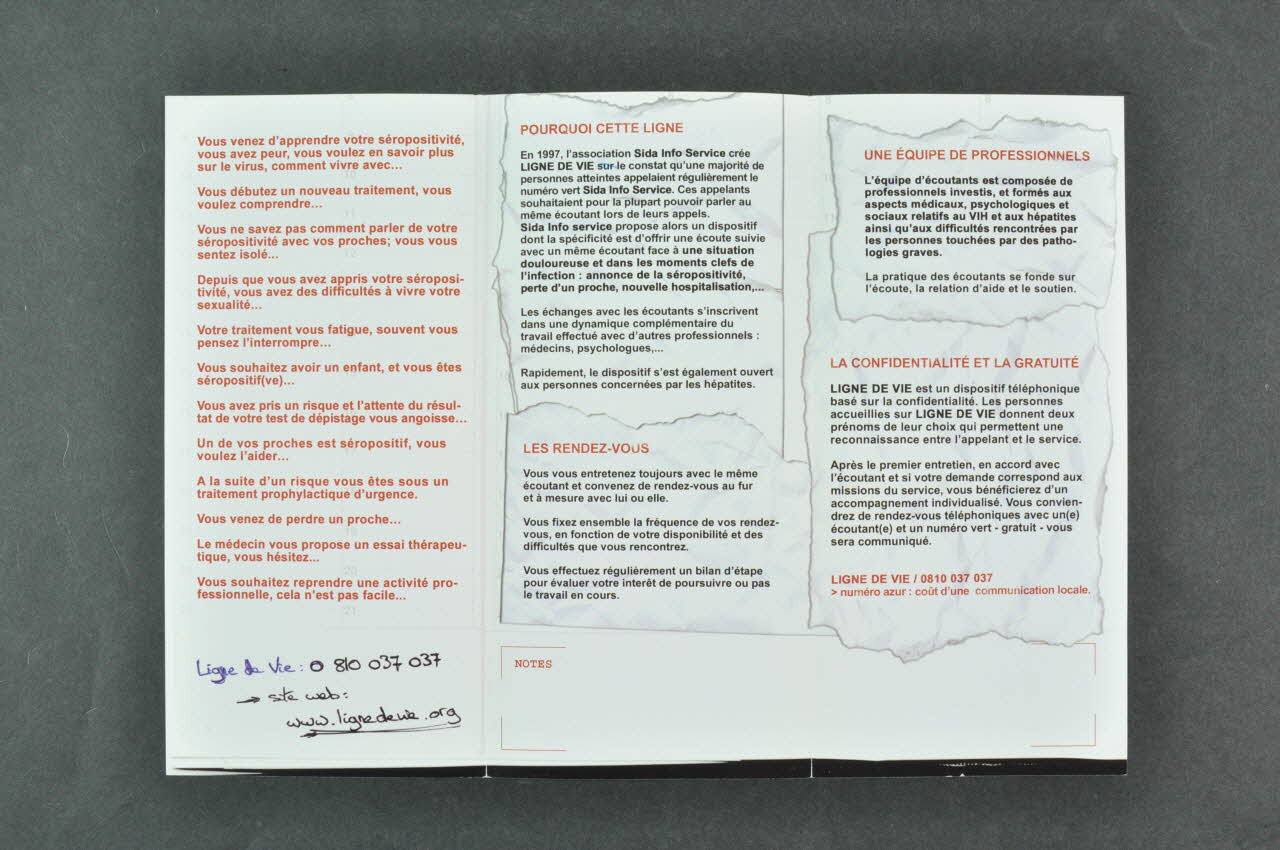 Vous venez d'apprendre votre séropositivité,
vous avez peur, vous voulez en savoir plus
sur le virus, comment vivre avec...
Vous débutez un nouveau traitement, vous
voulez comprendre...
Vous ne savez pas comment parler de votre
séropositivité avec vos proches; vous vous
sentez isolé...
Depuis que vous avez appris votre séroposi-
tivité, vous avez des difficultés à vivre votre
sexualité...
Votre traitement vous fatigue, souvent vous
pensez l'interrompre...
Vous souhaitez avoir un enfant, et vous êtes
séropositif(ve)...
Vous avez pris un risque et l'attente du résul-
tat de votre test de dépistage vous angoisse...
Un de vos proches est séropositif, vous
voulez l'aider...
A la suite d'un risque vous êtes sous un
traitement prophylactique d'urgence.
Vous venez de perdre un proche...
Le médecin vous propose un essai thérapeu-
tique, vous hésitez...
Vous souhaitez reprendre une activité pro-
fessionnelle, cela n'est pas facile...
Ligne de Vie : 0 810 037 037
→ site web :
www.lignedevie.org
POURQUOI CETTE LIGNE
En 1997, l'association Sida Info Service crée
LIGNE DE VIE sur le constat qu'une majorité de
personnes atteintes appelaient régulièrement le
numéro vert Sida Info Service. Ces appelants
souhaitaient pour la plupart pouvoir parler au
même écoutant lors de leurs appels.
Sida Info service propose alors un dispositif
dont la spécificité est d'offrir une écoute suivie
avec un même écoutant face à une situation
douloureuse et dans les moments clefs de
l'infection : annonce de la séropositivité,
perte d'un proche, nouvelle hospitalisation,...
Les échanges avec les écoutants s'inscrivent
dans une dynamique complémentaire du
travail effectué avec d'autres professionnels :
médecins, psychologues,...
Rapidement, le dispositif s'est également ouvert
aux personnes concernées par les hépatites.
LES RENDEZ-VOUS
Vous vous entretenez toujours avec le même
écoutant et convenez de rendez-vous au fur
et à mesure avec lui ou elle.
Vous fixez ensemble la fréquence de vos rendez-
vous, en fonction de votre disponibilité et des
difficultés que vous rencontrez.
Vous effectuez régulièrement un bilan d'étape
pour évaluer votre interêt de poursuivre ou pas
le travail en cours.
NOTES
UNE ÉQUIPE DE PROFESSIONNELS
L'équipe d'écoutants est composée de
professionnels investis, et formés aux
aspects médicaux, psychologiques et
sociaux relatifs au VIH et aux hépatites
ainsi qu'aux difficultés rencontrées par
les personnes touchées par des patho-
logies graves.
La pratique des écoutants se fonde sur
l'écoute, la relation d'aide et le soutien.
LA CONFIDENTIALITÉ ET LA GRATUITÉ
LIGNE DE VIE est un dispositif téléphonique
basé sur la confidentialité. Les personnes
accueillies sur LIGNE DE VIE donnent deux
prénoms de leur choix qui permettent une
reconnaissance entre l'appelant et le service.
Après le premier entretien, en accord avec
l'écoutant et si votre demande correspond aux
missions du service, vous bénéficierez d'un
accompagnement individualisé. Vous convien-
drez de rendez-vous téléphoniques avec un(e)
écoutant(e) et un numéro vert - gratuit - vous
sera communiqué.
LIGNE DE VIE / 0810 037 037
> numéro azur : coût d'une communication locale.